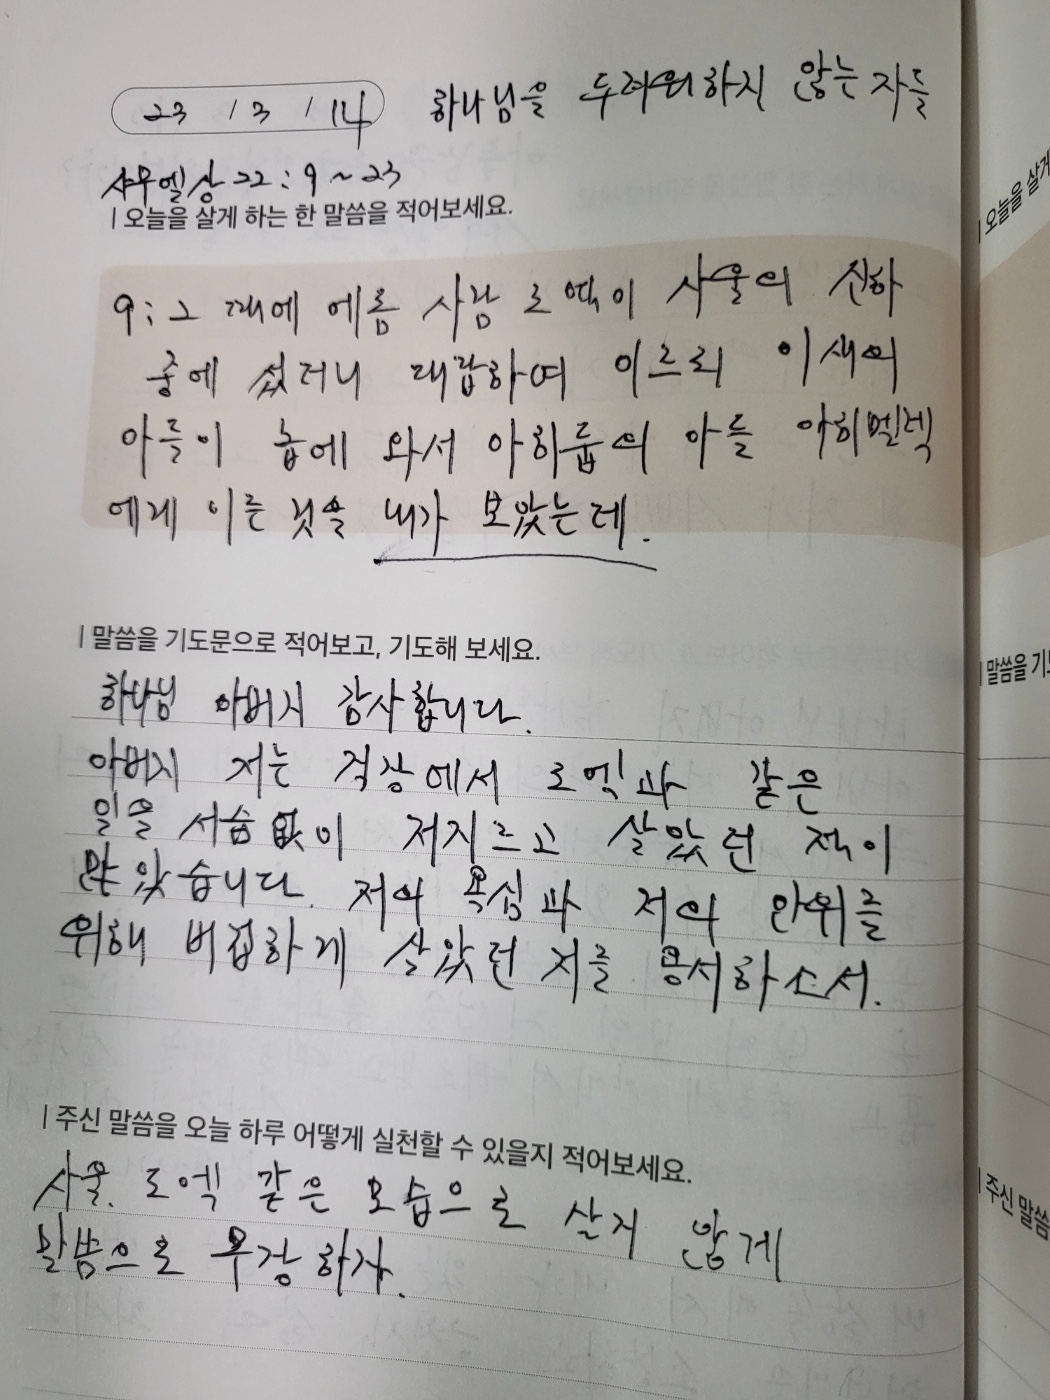 23 / 3 / 14 하나님을 두려워하지 않는 자들
사무엘상 22 : 9 ~ 23
| 오늘을 살게 하는 한 말씀을 적어보세요.
9 : 그 때에 에돔 사람 도엑이 사울의 신하
중에 섰더니 대답하여 이르되 이새의
아들이 놉에 와서 아히툽의 아들 아히멜렉
에게 이른 것을 내가 보았는데.
| 말씀을 기도문으로 적어보고, 기도해 보세요.
하나님 아버지 감사합니다.
아버지 저는 직장에서 도엑과 같은
일을 서슴없이 저지르고 살았던 적이
많았습니다. 저의 욕심과 저의 안위를
위해 비겁하게 살았던 저를 용서하소서.
| 주신 말씀을 오늘 하루 어떻게 실천할 수 있을지 적어보세요.
사울. 도엑 같은 모습으로 살지 않게
말씀으로 무장하자.
| 오늘을 살게
| 말씀을 기도
| 주신 말씀